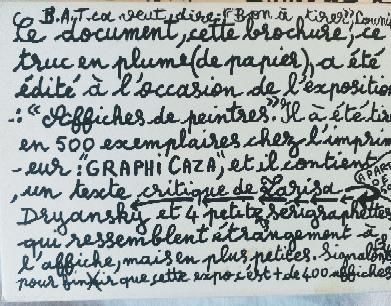 B.A.T. ça veut dire: "Bon à tirer"
Ce document, cette brochure, ce
truc en plume (de papier), a été
édité à l'occasion de l'exposition
-: "Affiches de peintres". Il a été tiré
en 500 exemplaires chez l'imprim
-eur: "GRAPHI CAZA", et il contient
, un texte critique de Larisa
Dryansky et 4 petites sérigraphies
qui ressemblent étrangement à
l'affiche, mais en plus petites. Signalons
pour finir que cette expo c'est + de 400 affiches